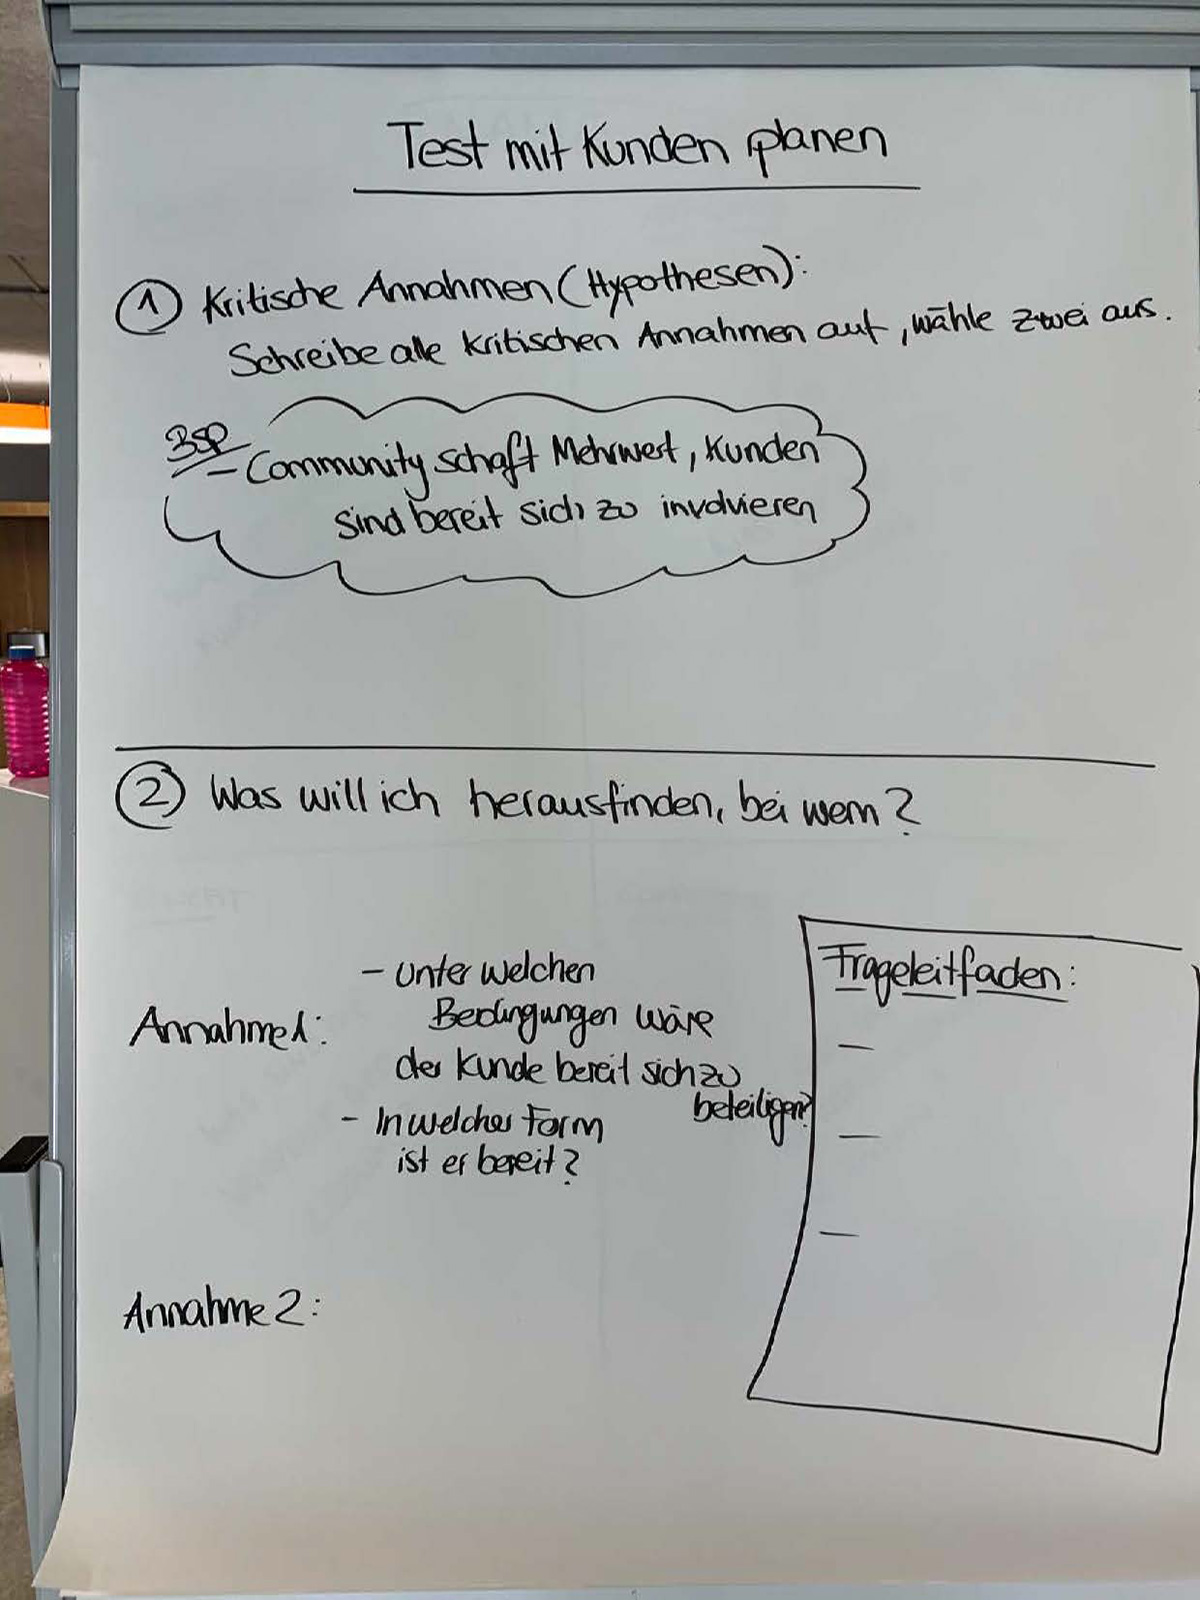 Test mit Kunden planen
1 Kritische Annahmen (Hypothesen):
Schreibe alle kritischen Annahmen auf, wähle zwei aus.
BSP
- Community schaft Mehrwert, Kunden
sind bereit sich zu involvieren
2 Was will ich herausfinden, bei wem?
Annahme1:
- Unter welchen
Bedingungen wäre
der Kunde bereit sich zu
beteiligen?
- In welcher Form
ist er bereit?
Frageleitfaden:
-
-
-
Annahme 2: